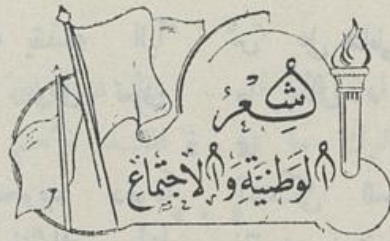 شِعْرُ
الوَطنِيَّةِ وَالاجْتِماعِ